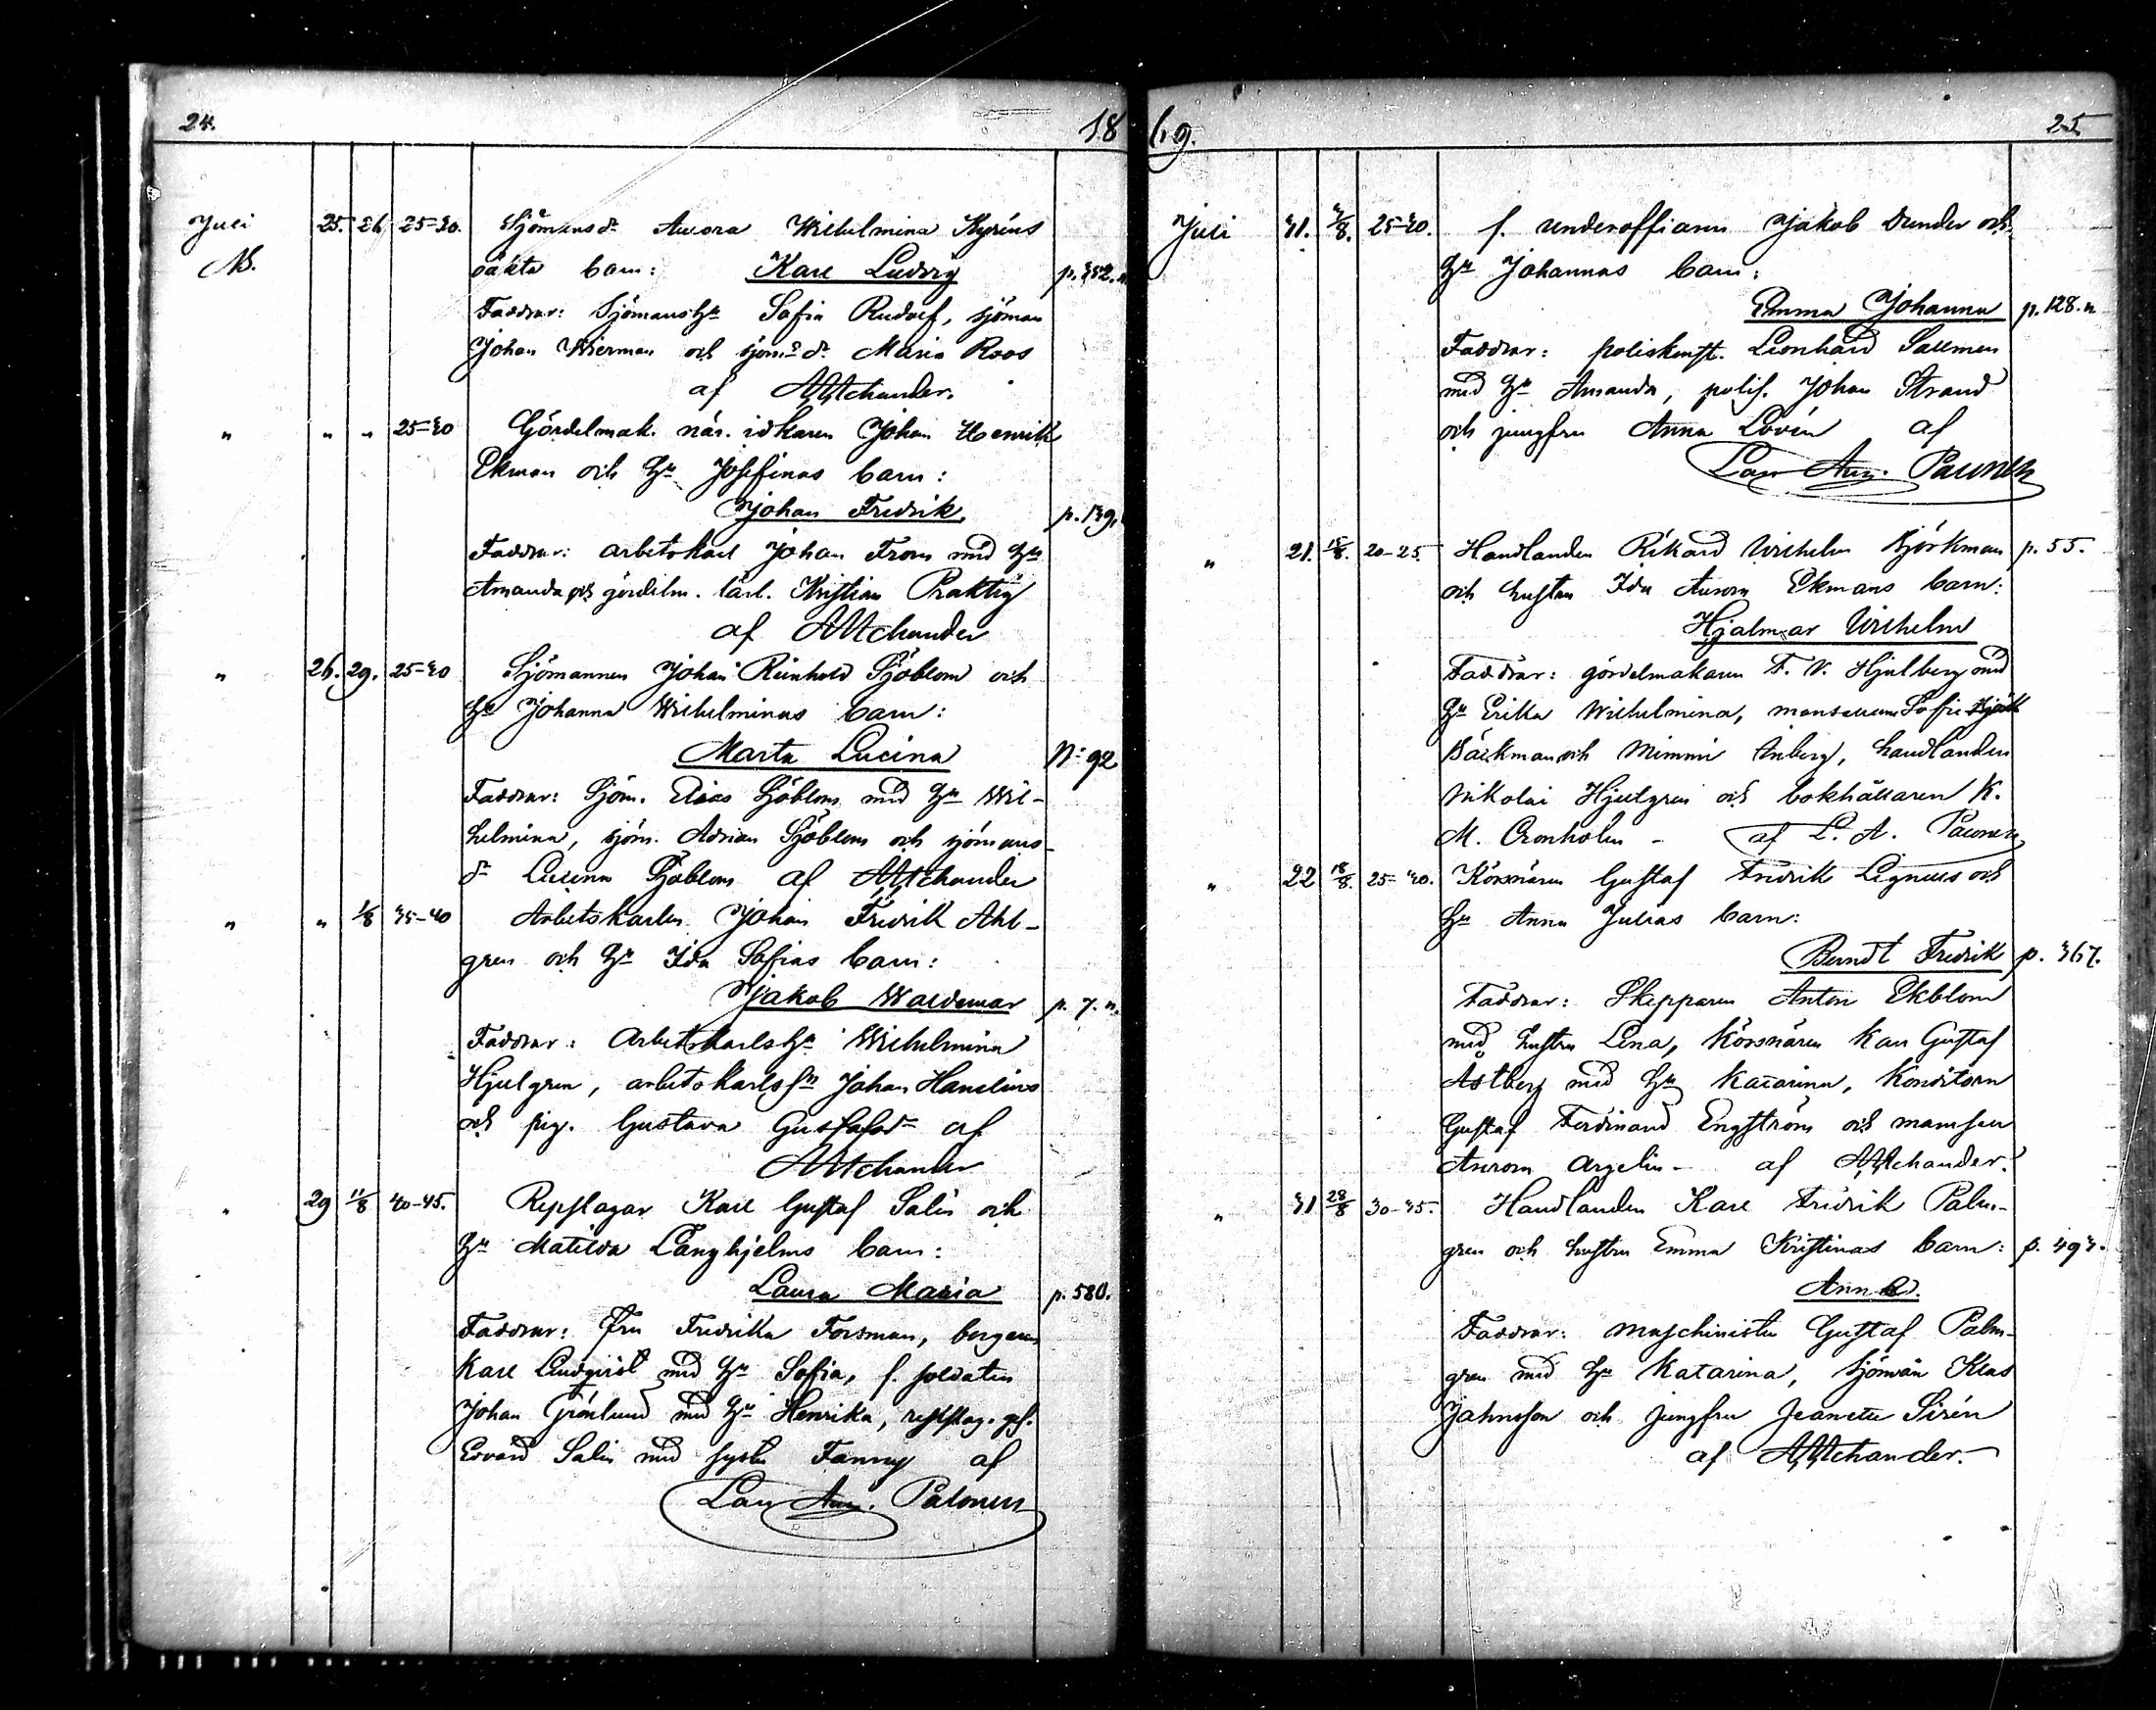 24.
18
Juli 25. 26 25-30. Sjömansd:r Aurora Wilhelmina Kyréns
NB. oäkta barn: Karl Ludvig p. 352. n
Faddrar: Sjömanshu Sofia Rudolf, sjöman
Johan Wierman och sjöm:s d:r Maria Roos
af
" " " 25-30 Gördelmak. när. idkaren Johan Henrik
Ekman och hu Josefinas barn:
Johan Fredrik. p. 139.
Faddrar: arbetskarl Johan From med hu
Amanda och gördelm. lärl. Kristian Praktig
af
" 26. 29. 25-30 Sjömannen Johan Reinhold Sjöblom och
hu Johanna Wilhelminas barn:
Marta Lucina N: 92
Faddrar: Sjöm. Elias Sjöblom med hu Wil-
helmina, sjöm. Adrian Sjöblom och sjömans-
d:r Lucina Sjöblom af
" " 1/8 35-40 Arbetskarlen Johan Fredrik Ahl-
gren och hu Ida Sofias barn:
Jakob Waldemar p. 7. n.
Faddrar: Arbetskarlshu Wilhelmina
Hjulgren, arbetskarlssn Johan Hanelius
och pig. Gustava Gustafsd:r af
" 29 11/8 40-45. Repslagar Karl Gustaf Salin och
hu Matilda Langhjelms barn:
Laura Maria p. 580.
Faddrar: Fru Fredrika Forsman, borgaren
Karl Lindqvist med hu Sofia, f. soldaten
Johan Grönlund med hu Henrika, repslag. ges.
Edvard Salin med syster Fanny af
Lars Aug. Palonen
69.
25
Juli 31. /8. 25-30. f. underofficern Jakob Dunder och
hu Johannas barn:
Emma Johanna p. 128. n
Faddrar: poliskonst. Leonhard Sallmen
med hu Amanda, polis. Johan Strand
och jungfru Anna Lovén af
Lars Aug. Palonen
" 21. 15/8. 20-25. Handlanden Rikard Wilhelm Björkman p. 55.
och hustru Ida Aurora Ekmans barn:
Hjalmar Wilhelm
Faddrar: gördelmakaren F. V. Hjulberg med
hu Erika Wilhelmina, Sofie
Bäckman och Mimmi Enberg, handlanden
Nikolai Hjulgren och bokhållaren K.
M. Cronholm - af L. A. Palonen
" 22 18/8. 25-30. Körsnären Gustaf Fredrik Lignells och
hu Anna Julias barn:
Berndt Fredrik p. 367.
Faddrar: Skepparen Anton Ekblom
med hustru Lena, Körsnären Karl Gustaf
Åstberg med hu Katarina, Konditorn
Gustaf Ferdinand Engström och mamsell
Aurora Argelin - af
" 31 28/8 30-35. Handlanden Karl Fredrik Palm-
gren och hustru Emma Kristinas barn: p. 493.
Anna.
Faddrar: Maschinisten Gustaf Palm-
gren med hu Katarina, sjöman Klas
Jahnsson och jungfru Jeanette Sirén
af